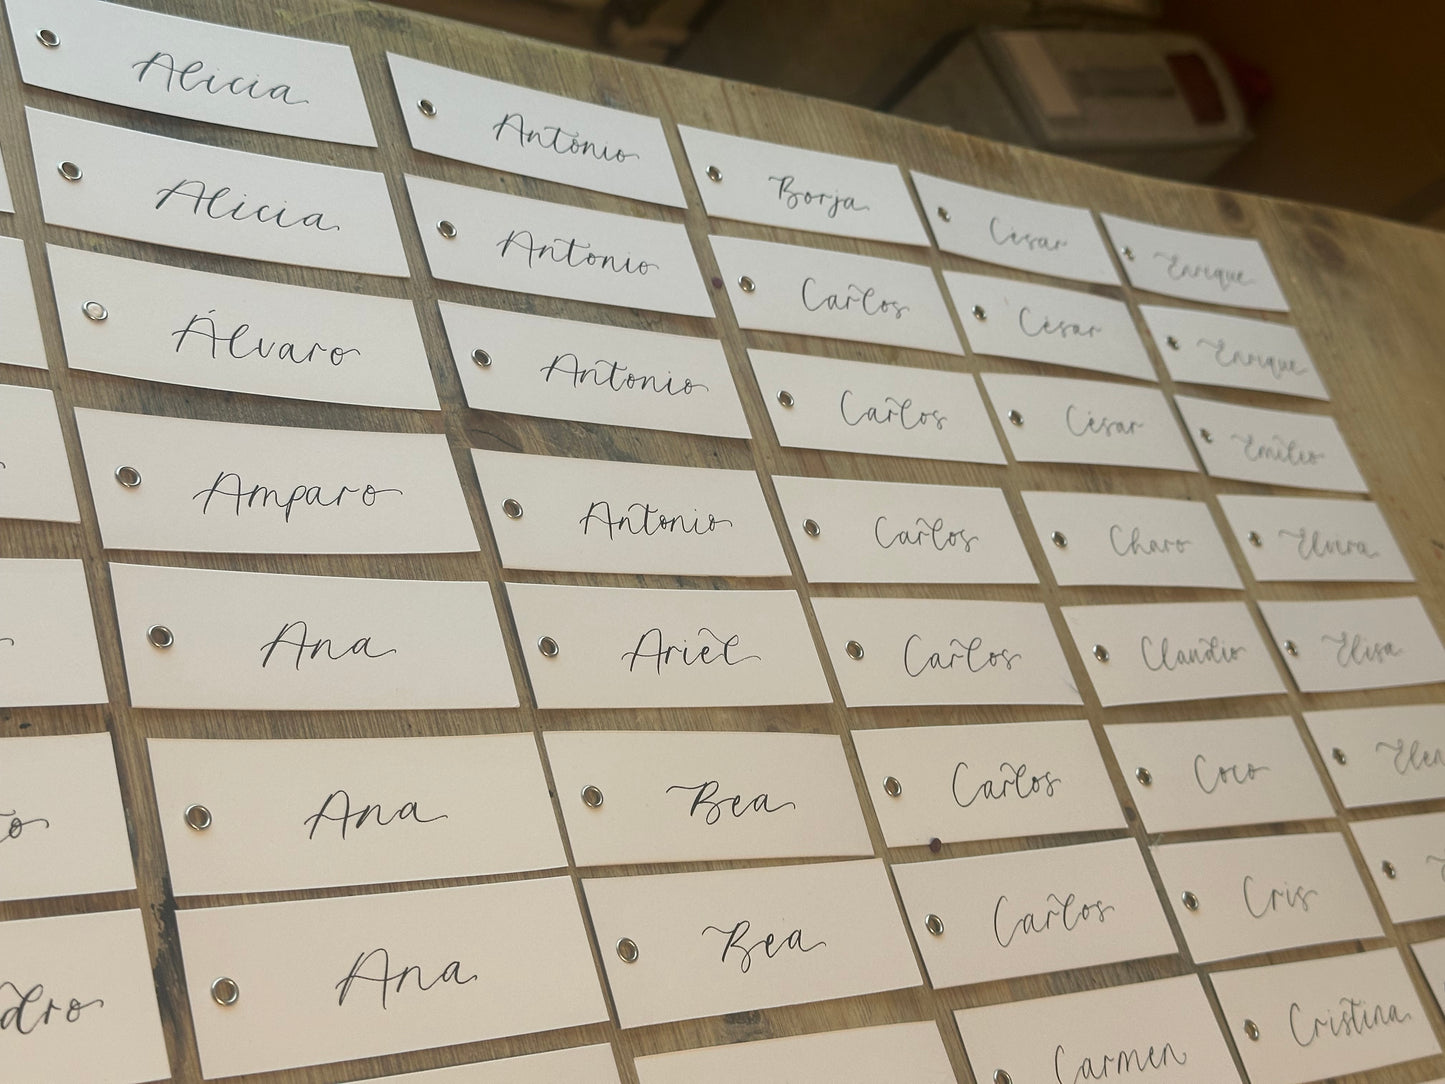 Alicia
Alicia
Álvaro
Amparo
Ana
Ana
Ana
Antonio
Antonio
Antonio
Antonio
Ariel
Bea
Bea
Borja
Carlos
Carlos
Carlos
Carlos
Carlos
Carlos
Carmen
César
César
César
Charo
Claudio
Coco
Cris
Cristina
Enrique
Enrique
Emilio
Elvira
Elisa